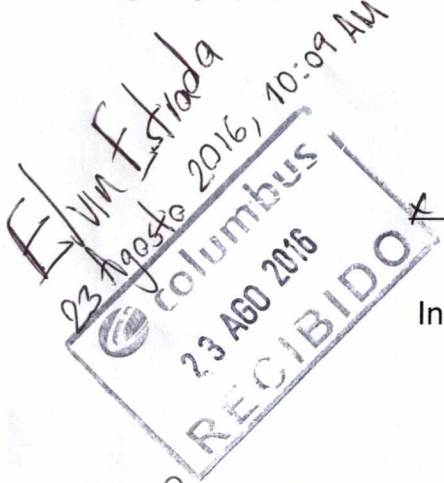 Elvin Estrada
23 Agosto 2016, 10:09 AM
columbus
23 AGO 2016
RECIBIDO
In